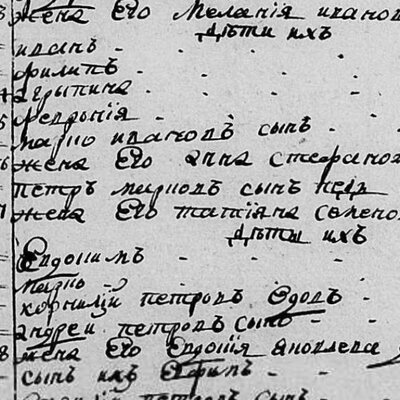 жена Его Меланiя иванов
дѣти ихъ
иванъ
филипъ
агрыпина
Ѳедронiя
марко ивановъ сынъ
жена Его анна стефанов
петръ марковъ сынъ
жена Его татiяна семено
дѣти ихъ
Евдокимъ
марко
корнилiй петровъ вдовъ
андрей петровъ сынъ
жена Его Евдокiя яковлева
сынъ ихъ Ефимъ
петровъ сынъ